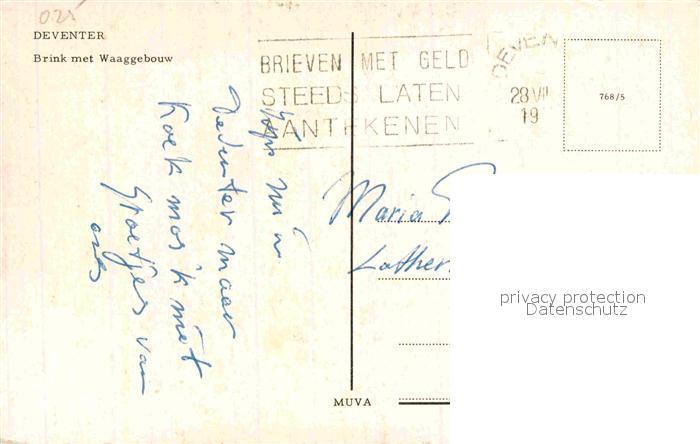 025
DEVENTER
Brink met Waaggebouw
BRIEVEN MET GELD
STEEDS LATEN
AANTEKENEN
DEVEN
28 VII
19
768/5
nu in
Deventer maar
Koek mos 'k niet
Groetjes van
ons
Maria
Luther
privacy protection
Datenschutz
MUVA